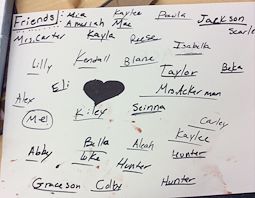 Friends: Mia Kaylee Paula Jackson
Mrs. Carter Kayla Reese Scarle
Isabella
Lilly Kendall Blane
Taylor Beka
Eli
Alex Mrs Ackerman
Mel Kiley
Carley
Kaylee
Abby Bella Aleah Hunter
Luke Hunter
Graceson Colby Hunter